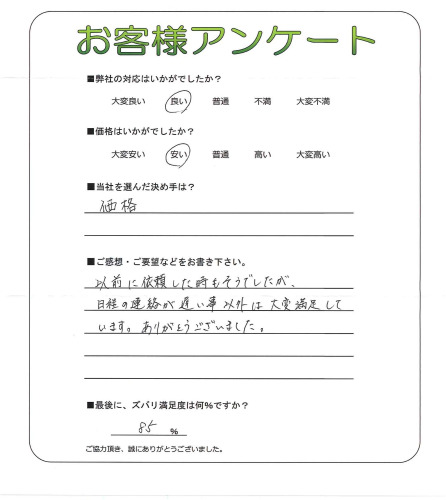 お客様アンケート
■弊社の対応はいかがでしたか？
大変良い 良い 普通 不満 大変不満
■価格はいかがでしたか？
大変安い 安い 普通 高い 大変高い
■当社を選んだ決め手は？
価格
■ご感想・ご要望などをお書き下さい。
以前に依頼した時もそうでしたが、
日程の連絡が遅い事以外は大変満足して
います。ありがとうございました。
■最後に、ズバリ満足度は何%ですか？
85 %
ご協力頂き、誠にありがとうございました。